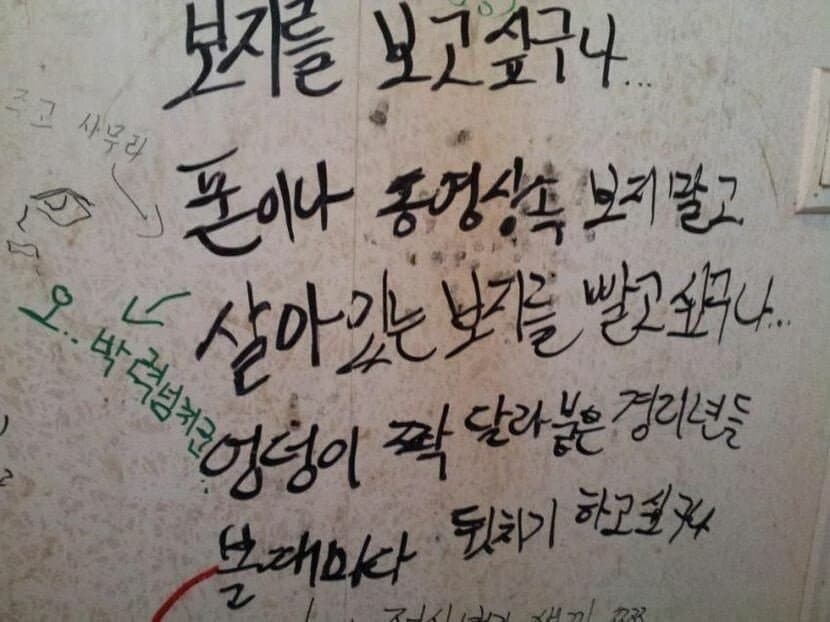 보지를 보고 싶구나...
즈고 사무라
폰이나 동영상속 보지말고
살아있는 보지를 빨고싶구나...
오.. 박력넘치군..
엉덩이 짝 달라붙은 경리년들
볼때마다 뒷치기 하고싶구나